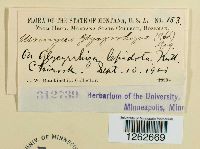 FLORA OF THE STATE OF MONTANA, U. S. A. No. 153
From Herb. Montana State College, Bozeman.
Uromyces Glycyrrhizae (Rabh)
On Glycyrrhiza lepidota Nutt.
Chinook. Sept. 10, 1901
W. W. Blankinship, Collector.
312739 Herbarium of the University,
Minneapolis, Minn
1262669